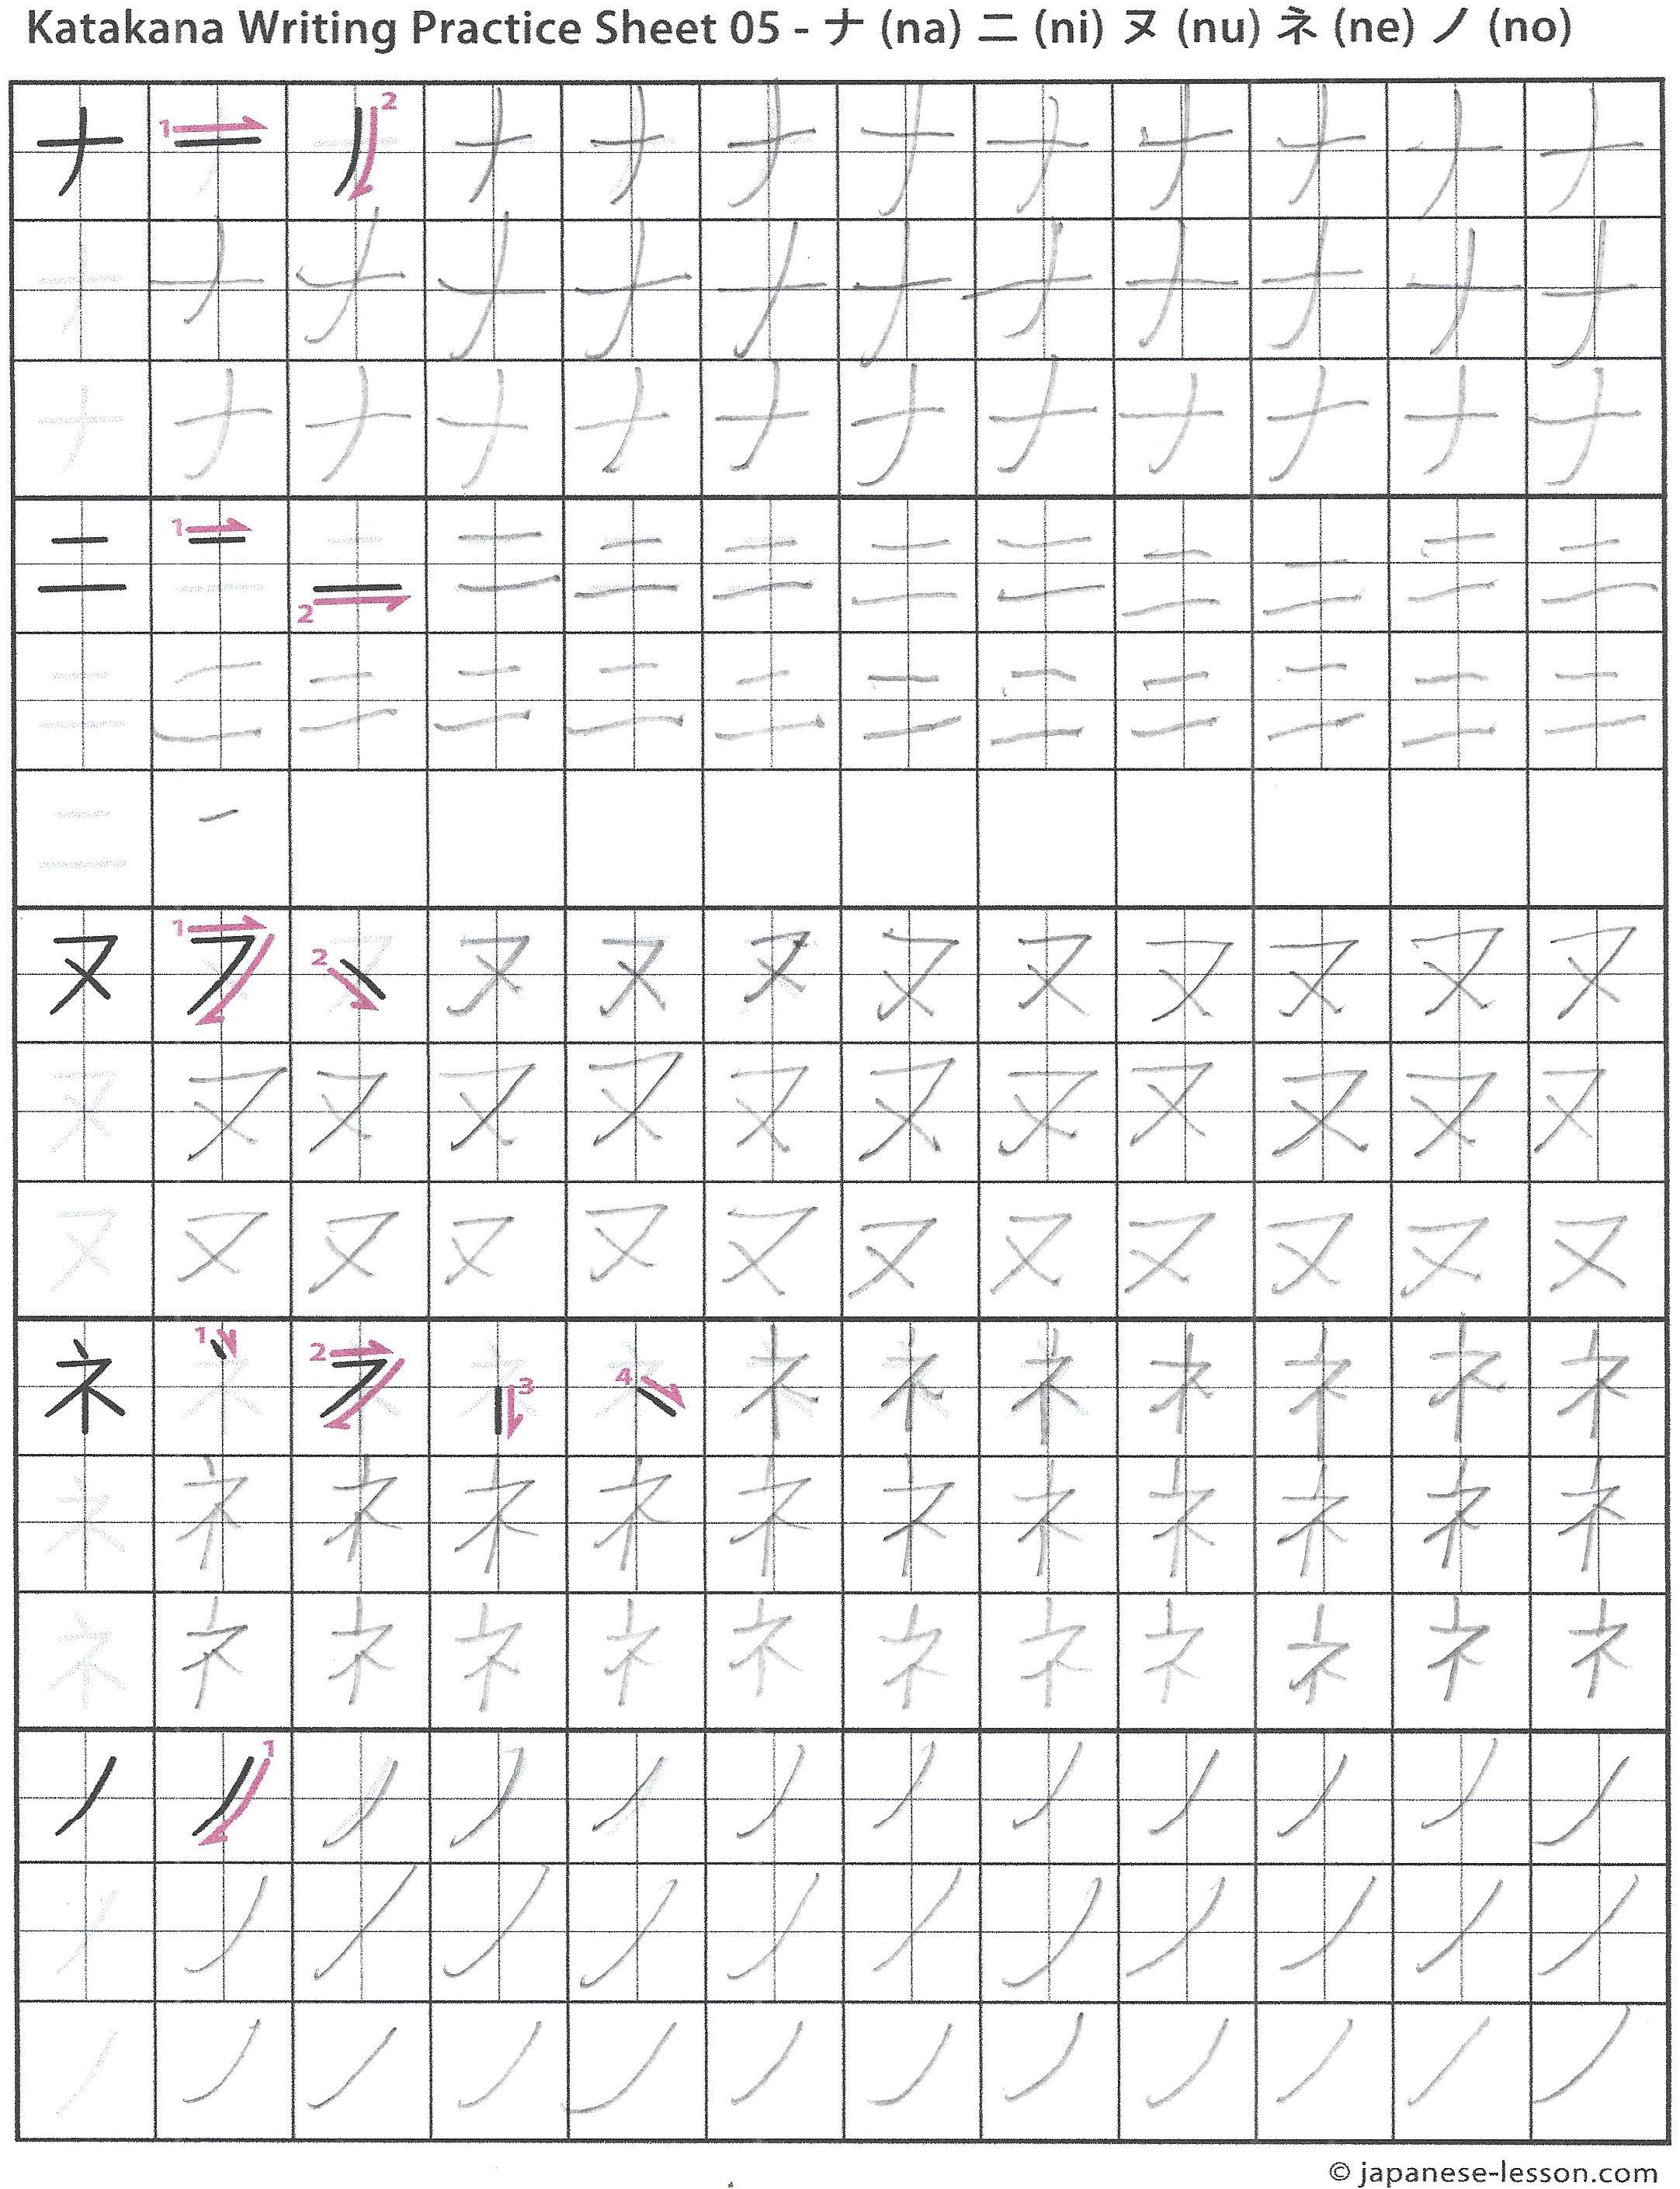 Katakana Writing Practice Sheet 05 - ナ (na) ニ (ni) ヌ (nu) ネ (ne) ノ (no)
ナ 1 2 ナ ナ ナ ナ ナ ナ ナ ナ ナ
ナ ナ ナ ナ ナ ナ ナ ナ ナ ナ ナ ナ
ナ ナ ナ ナ ナ ナ ナ ナ ナ ナ ナ ナ
ニ 1 2 ニ ニ ニ ニ ニ ニ ニ ニ ニ
ニ ニ ニ ニ ニ ニ ニ ニ ニ ニ ニ ニ
ニ
ヌ 1 2 ヌ ヌ ヌ ヌ ヌ ヌ ヌ ヌ ヌ
ヌ ヌ ヌ ヌ ヌ ヌ ヌ ヌ ヌ ヌ ヌ ヌ
ヌ ヌ ヌ ヌ ヌ ヌ ヌ ヌ ヌ ヌ ヌ ヌ
ネ 1 2 3 4 ネ ネ ネ ネ ネ ネ ネ
ネ ネ ネ ネ ネ ネ ネ ネ ネ ネ ネ ネ
ネ ネ ネ ネ ネ ネ ネ ネ ネ ネ ネ ネ
ノ 1 ノ ノ ノ ノ ノ ノ ノ ノ ノ ノ
ノ ノ ノ ノ ノ ノ ノ ノ ノ ノ ノ ノ
ノ ノ ノ ノ ノ ノ ノ ノ ノ ノ ノ ノ
© japanese-lesson.com